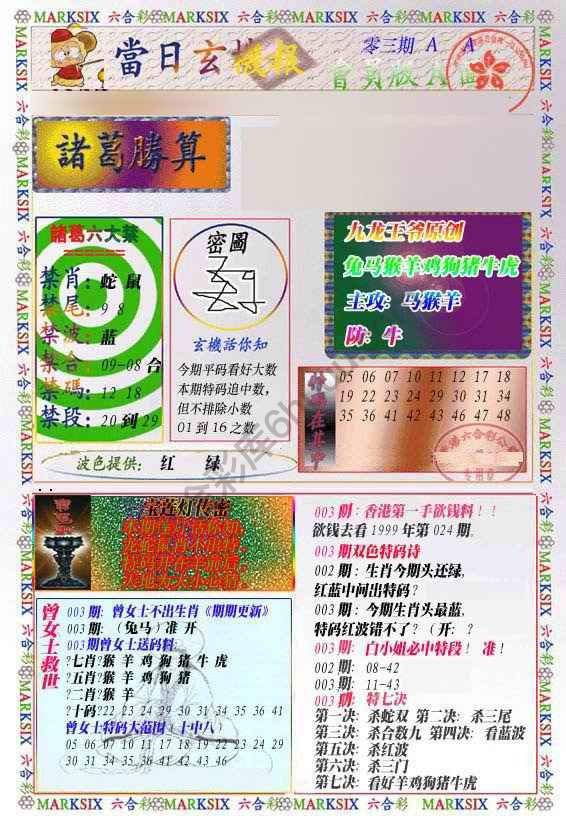 MARKSIX 六合彩 MARKSIX 六合彩 MARKSIX 六合彩 MARKSIX 六合彩 MARKSIX
當日玄機报
零三期 A A
會員版A面
諸葛勝算
諸葛六大禁
禁肖: 蛇 鼠
禁尾: 9 8
禁波: 蓝
禁合: 09-08 合
禁碼: 12 18
禁段: 20 到 29
密圖
玄機話你知
今期平码看好大数
本期特码追中数,
但不排除小数
01 到 16 之数
九龙王爷原创
兔马猴羊鸡狗猪牛虎
主攻: 马猴羊
防: 牛
05 06 07 10 11 12 17 18
19 22 23 24 29 30 31 34
35 36 41 42 43 46 47 48
波色提供: 红 绿
宝莲灯传密
曾女士救世
003 期: 曾女士不出生肖《期期更新》
003 期: (兔马) 准 开
003 期曾女士送码料:
?七肖?猴 羊 鸡 狗 猪 牛 虎
?五肖?猴 羊 鸡 狗 猪
?二肖?猴 羊
?十码?22 23 24 29 30 31 34 35 36 41
曾女士特码大范围(十中八)
05 06 07 10 11 12 17 18 19 22 23 24 29
30 31 34 35 36 41 42 43 46
003 期: 香港第一手欲钱料!!
欲钱去看 1999 年第 024 期.
003 期双色特码诗
002 期: 生肖今期头还绿,
红蓝中间出特码?
003 期: 今期生肖头最蓝,
特码红波错不了? (开: ?
003 期: 白小姐必中特段! 准!
002 期: 08-42
003 期: 11-43
003 期: 特七决
第一决: 杀蛇双 第二决: 杀三尾
第三决: 杀合数九 第四决: 看蓝波
第五决: 杀红波
第六决: 杀三门
第七决: 看好羊鸡狗猪牛虎
MARKSIX 六合彩 MARKSIX 六合彩 MARKSIX 六合彩 MARKSIX 六合彩 MARKSIX